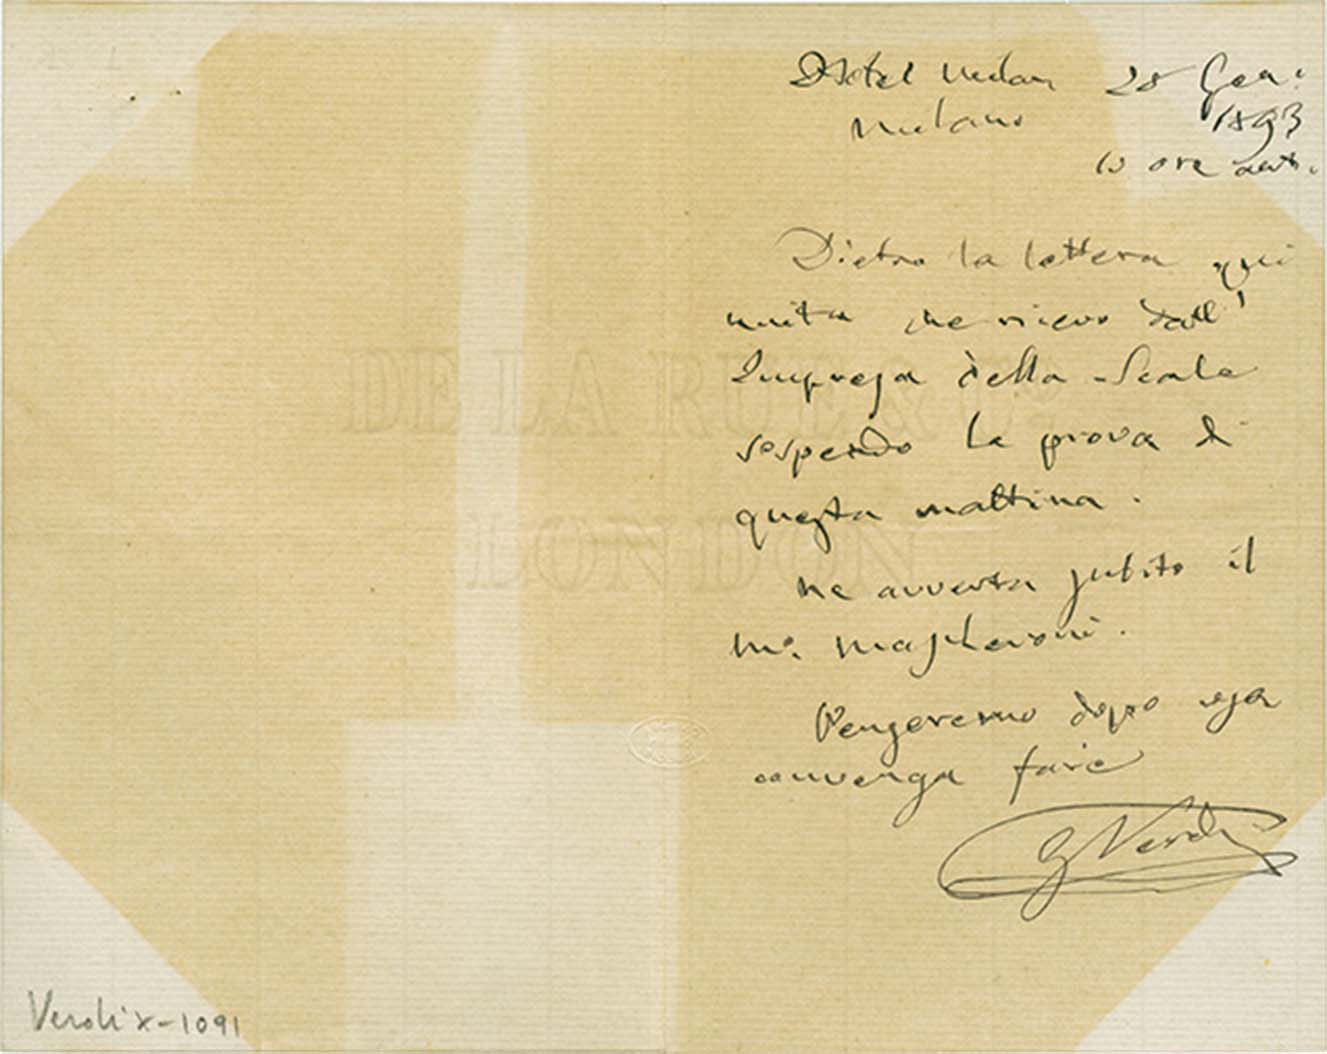 Hotel Milan 28 Gen.
Milano 1893
10 ore ant.
Dietro la lettera qui
unita che ricevo dall'
Impresa della Scala
sospendo la prova di
questa mattina.
Ne avverta subito il
Mo. Mascheroni.
Penseremo dopo cosa
convenga fare
G Verdi
DE LA RUE & Co
LONDON
Verdi x-1091